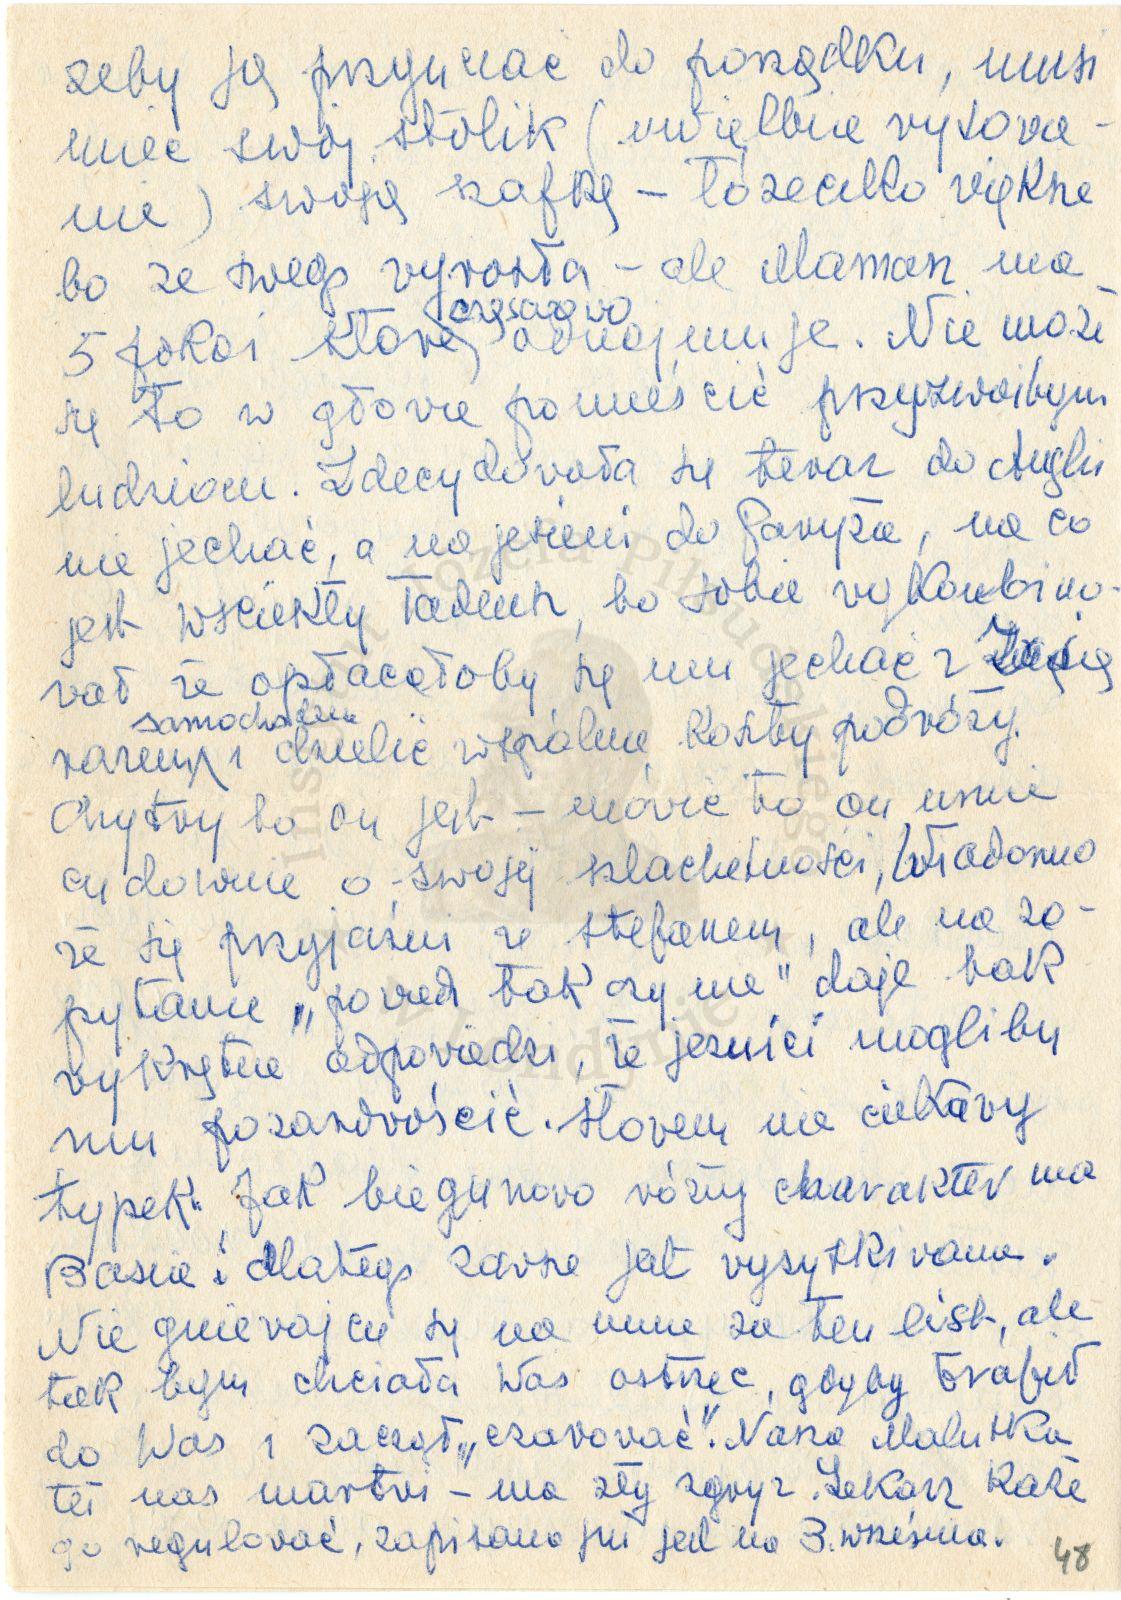 żeby ją przyuczać do porządku, musi
mieć swój stolik (uwielbia rysowa-
nie) swoją szafkę – łóżeczko większe
bo ze swego wyrosła – ale Maman ma
5 pokoi które częściowo odnajmuje. Nie może
się to w głowie pomieścić przyzwoitym
ludziom. Zdecydowała się teraz do Anglii
nie jechać, a na jesieni do Paryża, na co
jest wściekły Tadeusz, bo sobie wykombino-
wał że opłacałoby się mu jechać z
razem samochodem i dzielić wspólnie koszty podróży.
Chytry bo on jest – mówić to on umie
cudownie o swojej szlachetności, Wiadomo
że się przyjaźni ze Stefanem, ale na za-
pytanie „powiedz tak czy nie" daje tak
wykrętne odpowiedzi, że jezuici mogliby
mu pozazdrościć. Słowem nie ciekawy
typek. Jak biegunowo różny charakter ma
Basia i dlatego zawsze jest wyszytkiwana.
Nie gniewajcie się na mnie za ten list, ale
tak bym chciała Was ostrzec, gdyby trafił
do Was i zaczął „czarować". Nasza Malutka
też nas martwi – ma zły zgryz. Lekarz każe
go regulować, zapisana już jest na 3. września.
48
Instytut Józefa Piłsudskiego
w Londynie